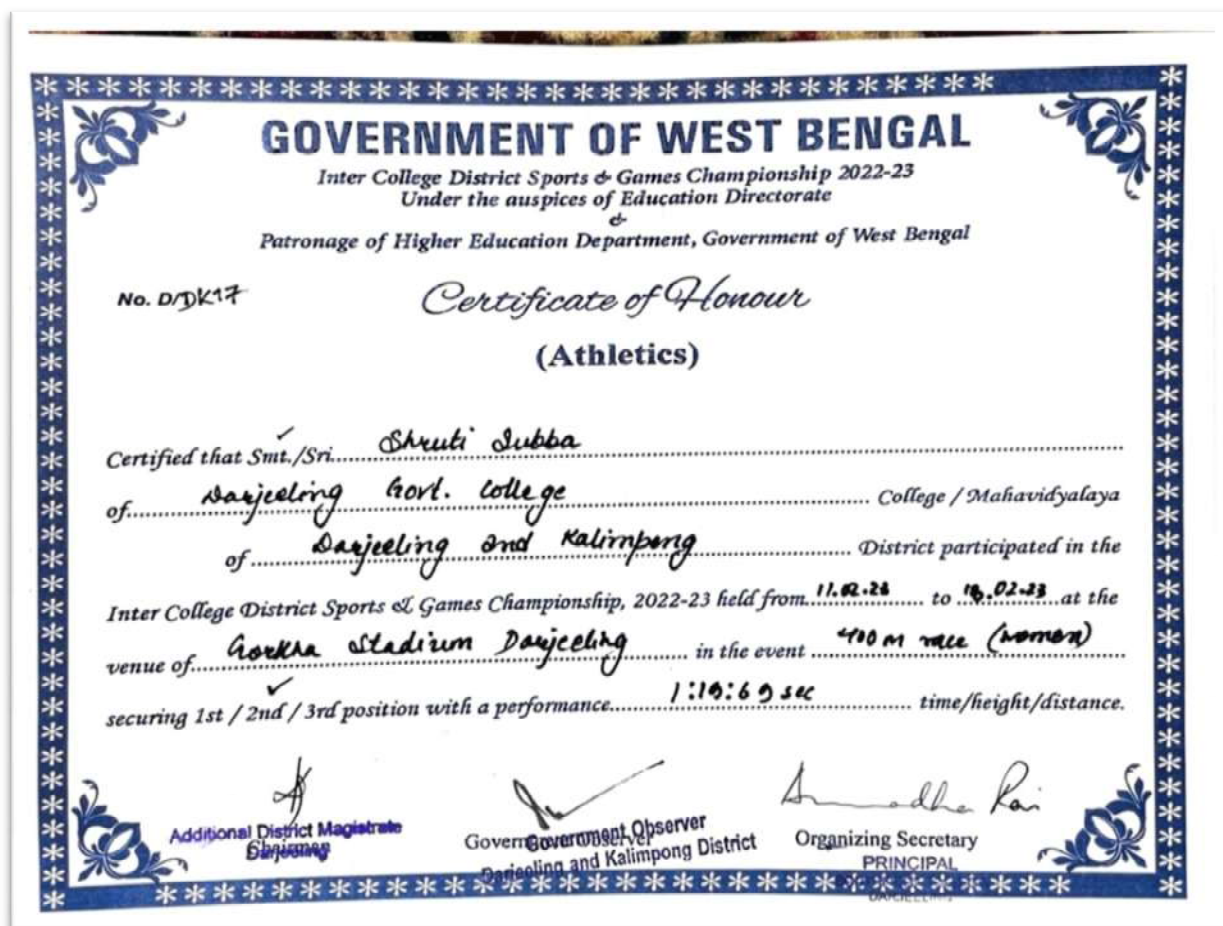 GOVERNMENT OF WEST BENGAL
Inter College District Sports & Games Championship 2022-23
Under the auspices of Education Directorate
&
Patronage of Higher Education Department, Government of West Bengal
No. D/DK17
Certificate of Honour
(Athletics)
Certified that Smt./Sri. Shruti Subba
of Darjeeling Govt. College College / Mahavidyalaya
of Darjeeling and Kalimpong District participated in the
Inter College District Sports & Games Championship, 2022-23 held from 11.02.23 to .02.23 at the
venue of Gorkha Stadium Darjeeling in the event 400 m race (women)
securing 1st / 2nd / 3rd position with a performance 1:19:69 sec time/height/distance.
Anuradha Rai
Additional District Magistrate
Chairman
Darjeeling
Government Observer
Government Observer
Darjeeling and Kalimpong District
Organizing Secretary
PRINCIPAL
DARJEELING